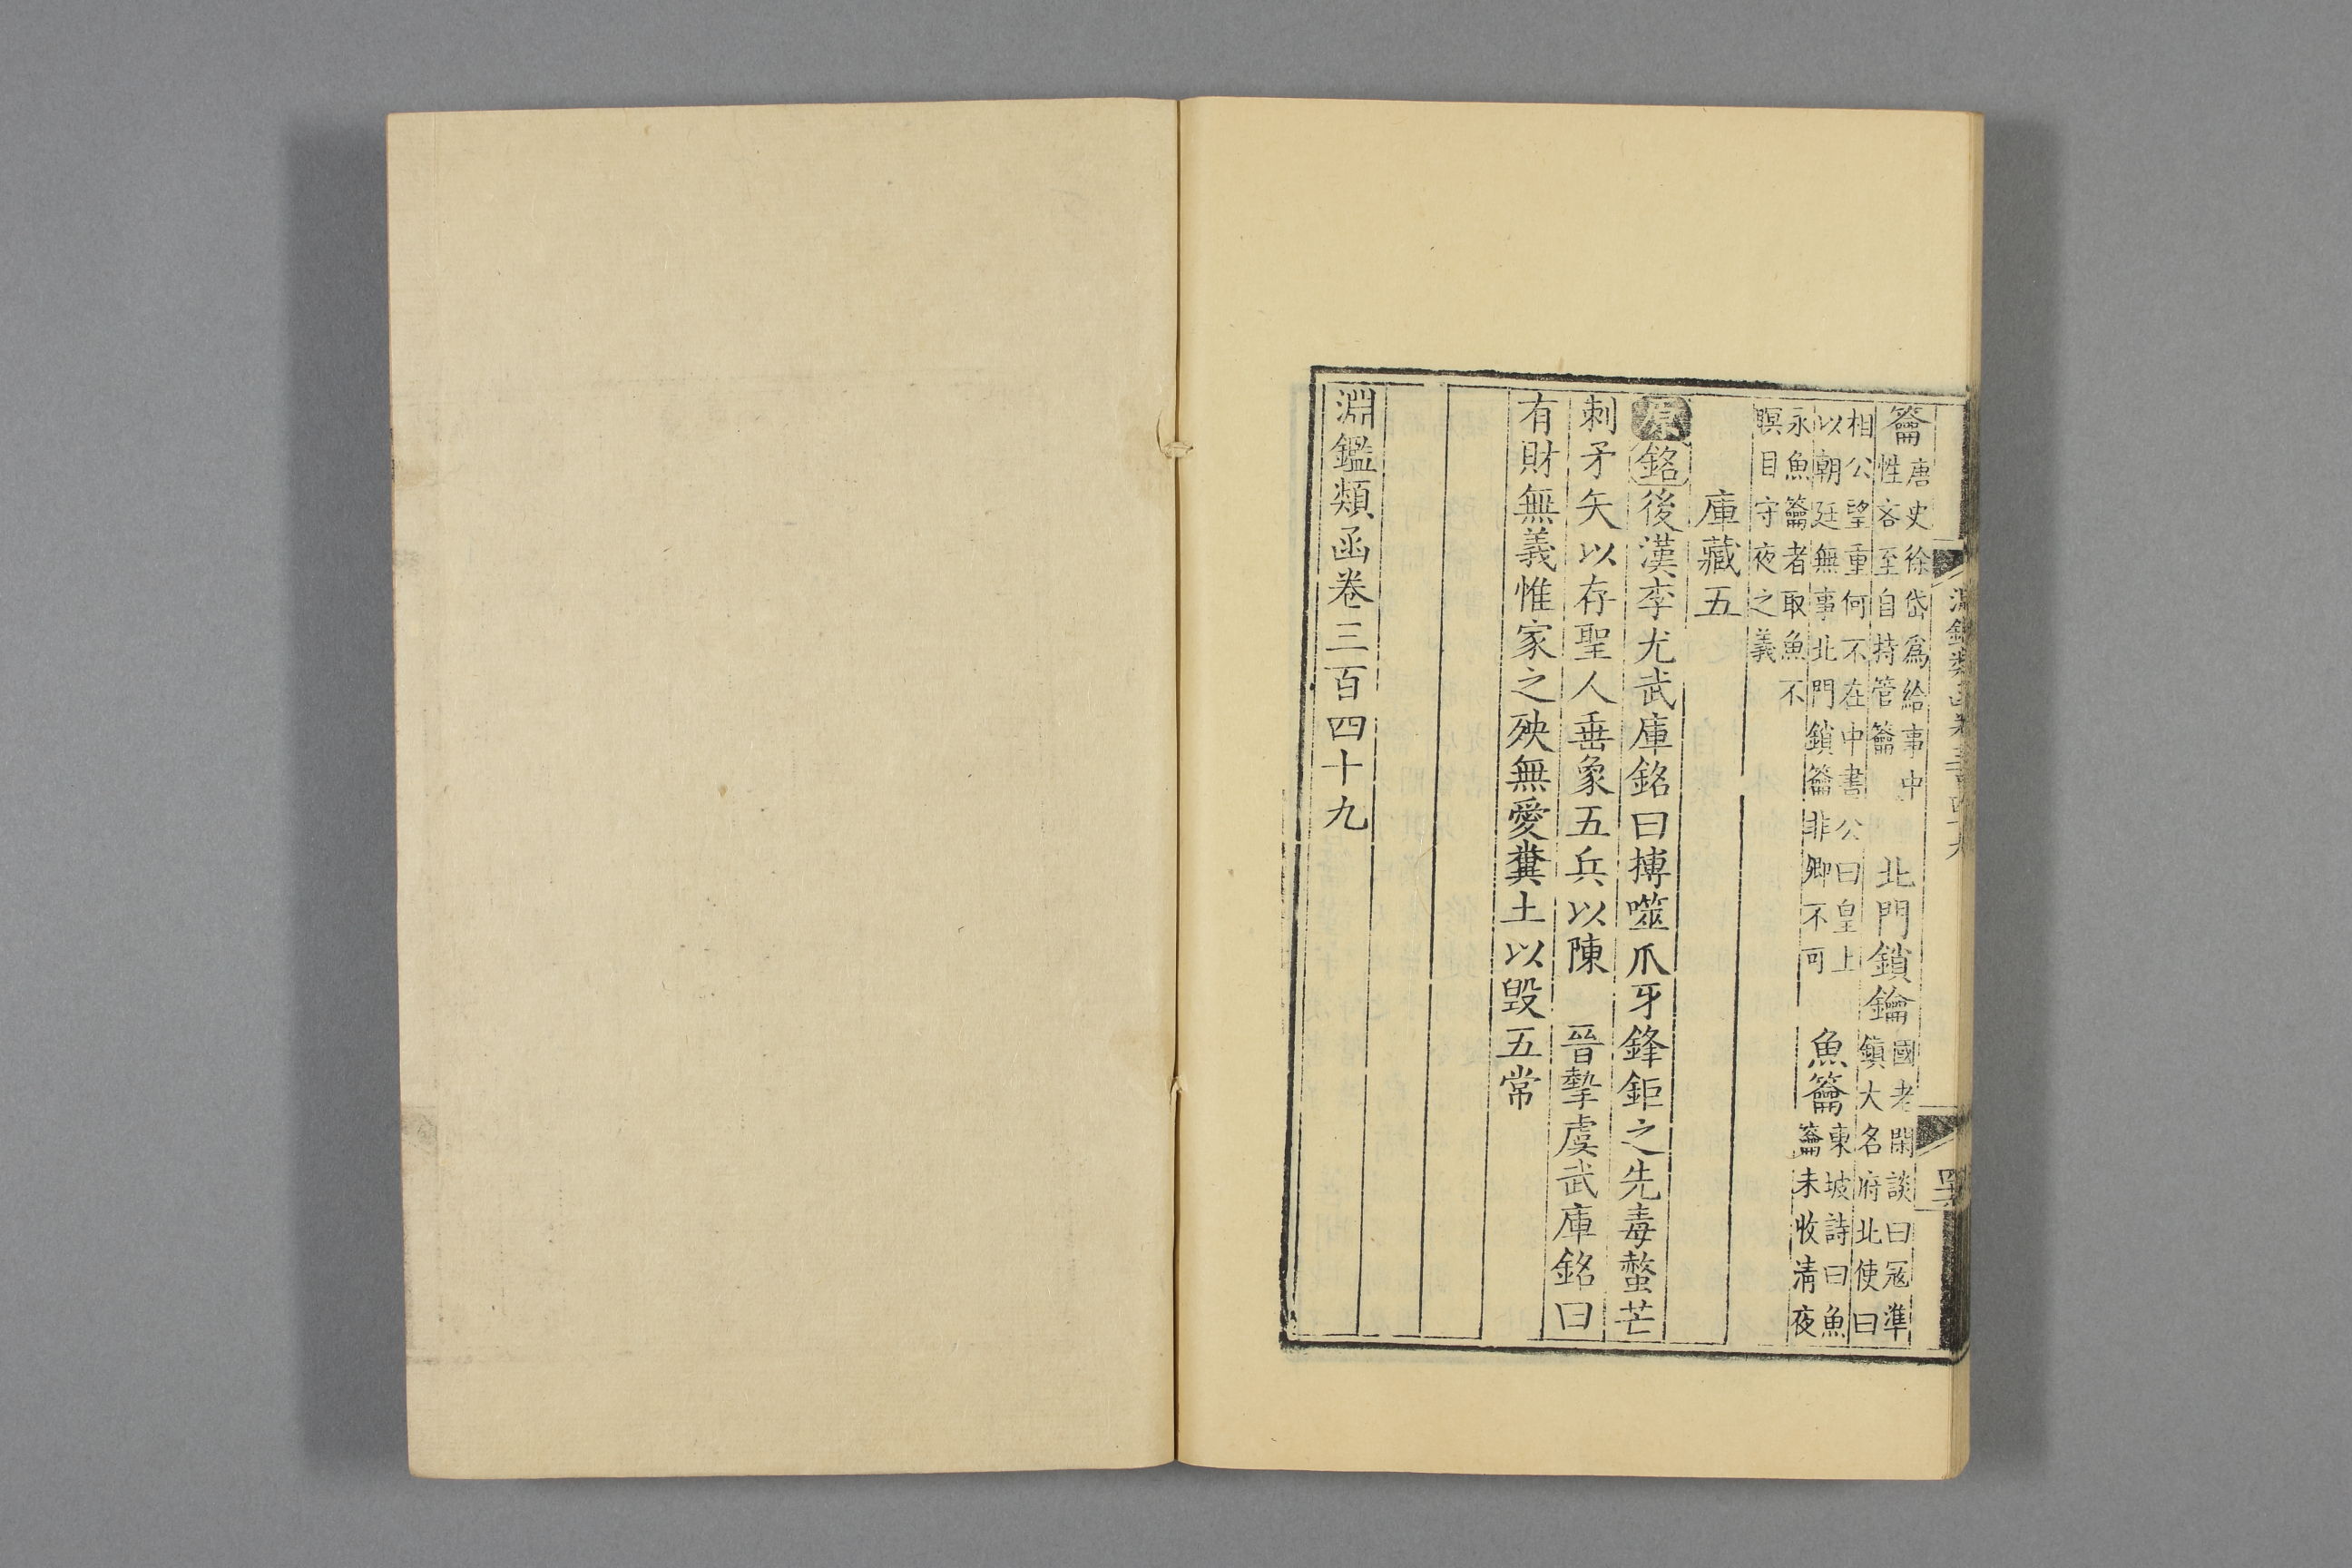 淵鑑類函卷三百四十九
籥
唐史徐岱爲給事中
性吝至自持管籥
北門鎖鑰
國老閑談曰冦準
鎮大名府北使曰
相公望重何不在中書公曰皇上
以朝廷無事北門鎖籥非卿不可
魚籥
東坡詩曰魚
籥未收清夜
永魚籥者取魚不
瞑目守夜之義
庫藏五
原銘後漢李尤武庫銘曰搏噬爪牙鋒鉅之先毒螫芒
刺矛矢以存聖人垂象五兵以陳　晉摯虞武庫銘曰
有財無義惟家之殃無愛糞土以毀五常
淵鑑類函卷三百四十九